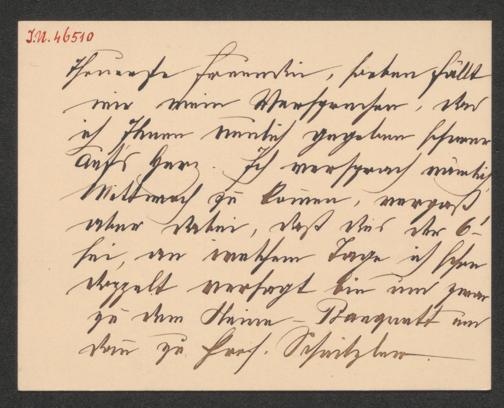 I.N. 46510
Theuerste Freundin, soeben fällt
mir mein Versprechen, das
ich Ihnen neulich gegeben schwer
auf's Herz. Ich versprach nämlich
Mittwoch zu kommen, vergaß
aber dabei, daß dies der 6te
sei, an welchem Tage ich schon
doppelt versagt bin und zwar
zu dem Heine-Banquett und
dann zu Prof. Schnitzler.